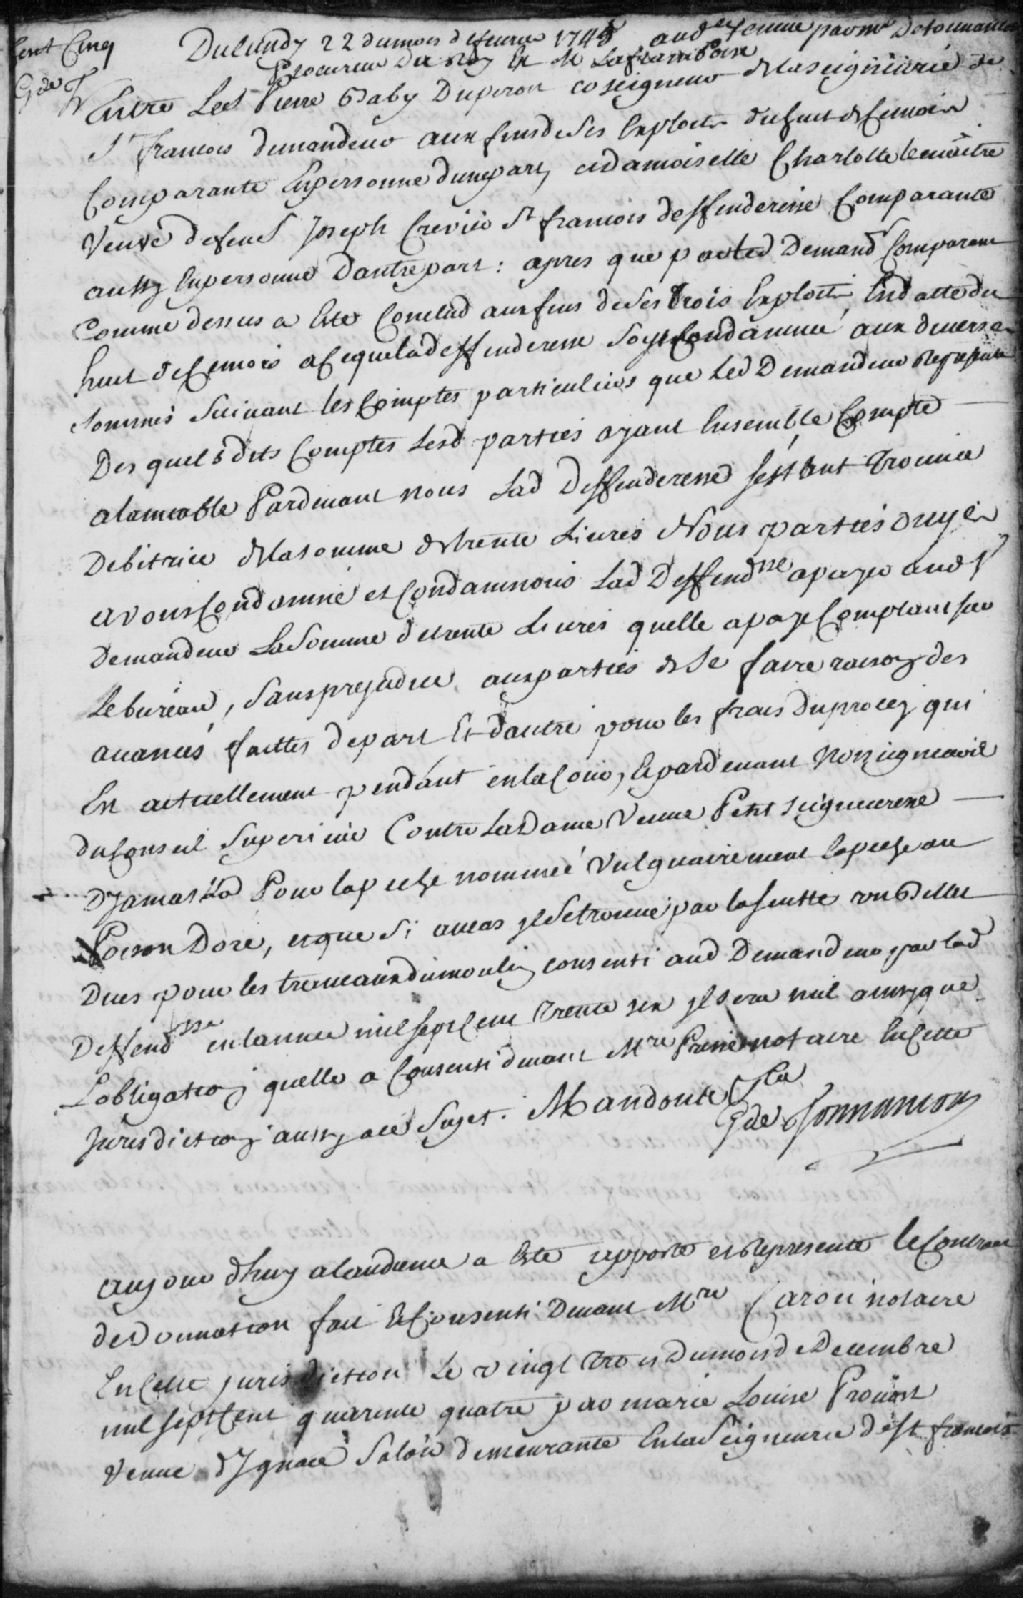 Cent Cinq
G de T
Du Lundy 22 du mois de feurier 1745 aud.ce tenue par mr Detonnancour
procureur du Roy & Mr Laframboise
Entre Le Sr Pierre Baby Duperon coseigneur de la seigneurie de
St francois demandeur aux fins de ses Exploits du huit de Cemois
Comparante Enpersonne dunepart, et damoiselle Charlotte lemaitre
Veuve defeu Sr Joseph Crevier St francois deffenderesse Comparante
aussy Enpersonne Dautrepart : apres que par led Demandr Comparant
Comme dessus a Este Conclud aux fins deses trois Exploits Endatte du
huit de Cemois a Cequeladeffenderesse Soit Condamnée aux diverses
sommes suivant les Comptes particuliers que led Demandeur Represente
Des quels dits Comptes lesd parties ayant Ensemble Compté
alamiable Pardevant nous Lad Deffenderesse sestant trouvée
Debitrice de la somme de trente Livres Nous parties ouyes
avons Condamné et Condamnons Lad Deffendsse apayer aud Sr
Demandeur La Somme de trente Livres quelle apayé Comptant sur
Le bureau, Sansprejudice auxparties de Se faire raison des
avances faittes depart Et dautre pour les frais duprocez qui
En actuellement pendant enlaCour, Epardevant Nosseigneurs
duConseil Superieur Contre LaDame Veuve Petit seigneuresse
DYamaska Pour lapeche nommée Vulguairement lapeche au
Poisson Doré, et que Si aucas il se trouve par la suitte un billet
Dues pour les tremeaux du moulin consenti aud Demandeur par lad
Deffendsse en lannee mil sept Cent trente six il sera nul ainsy que
Lobligation quelle a Consenti devant Mre Pressé notaire En Cette
Jurisdiction aussy ace Sujet. Mandons &a
G de Tonnancour
aujourdhuy alaudience a Este apporté et Represente le Contract
de Donnation fait & Consenti Devant Mre Caron notaire
En Cette jurisdiction Le vingt trois Dumois de Decembre
mil sept Cent quarente quatre par marie Louise Prouost
Veuve dIgnace Salois demeurante En la Seigneurie de St francois